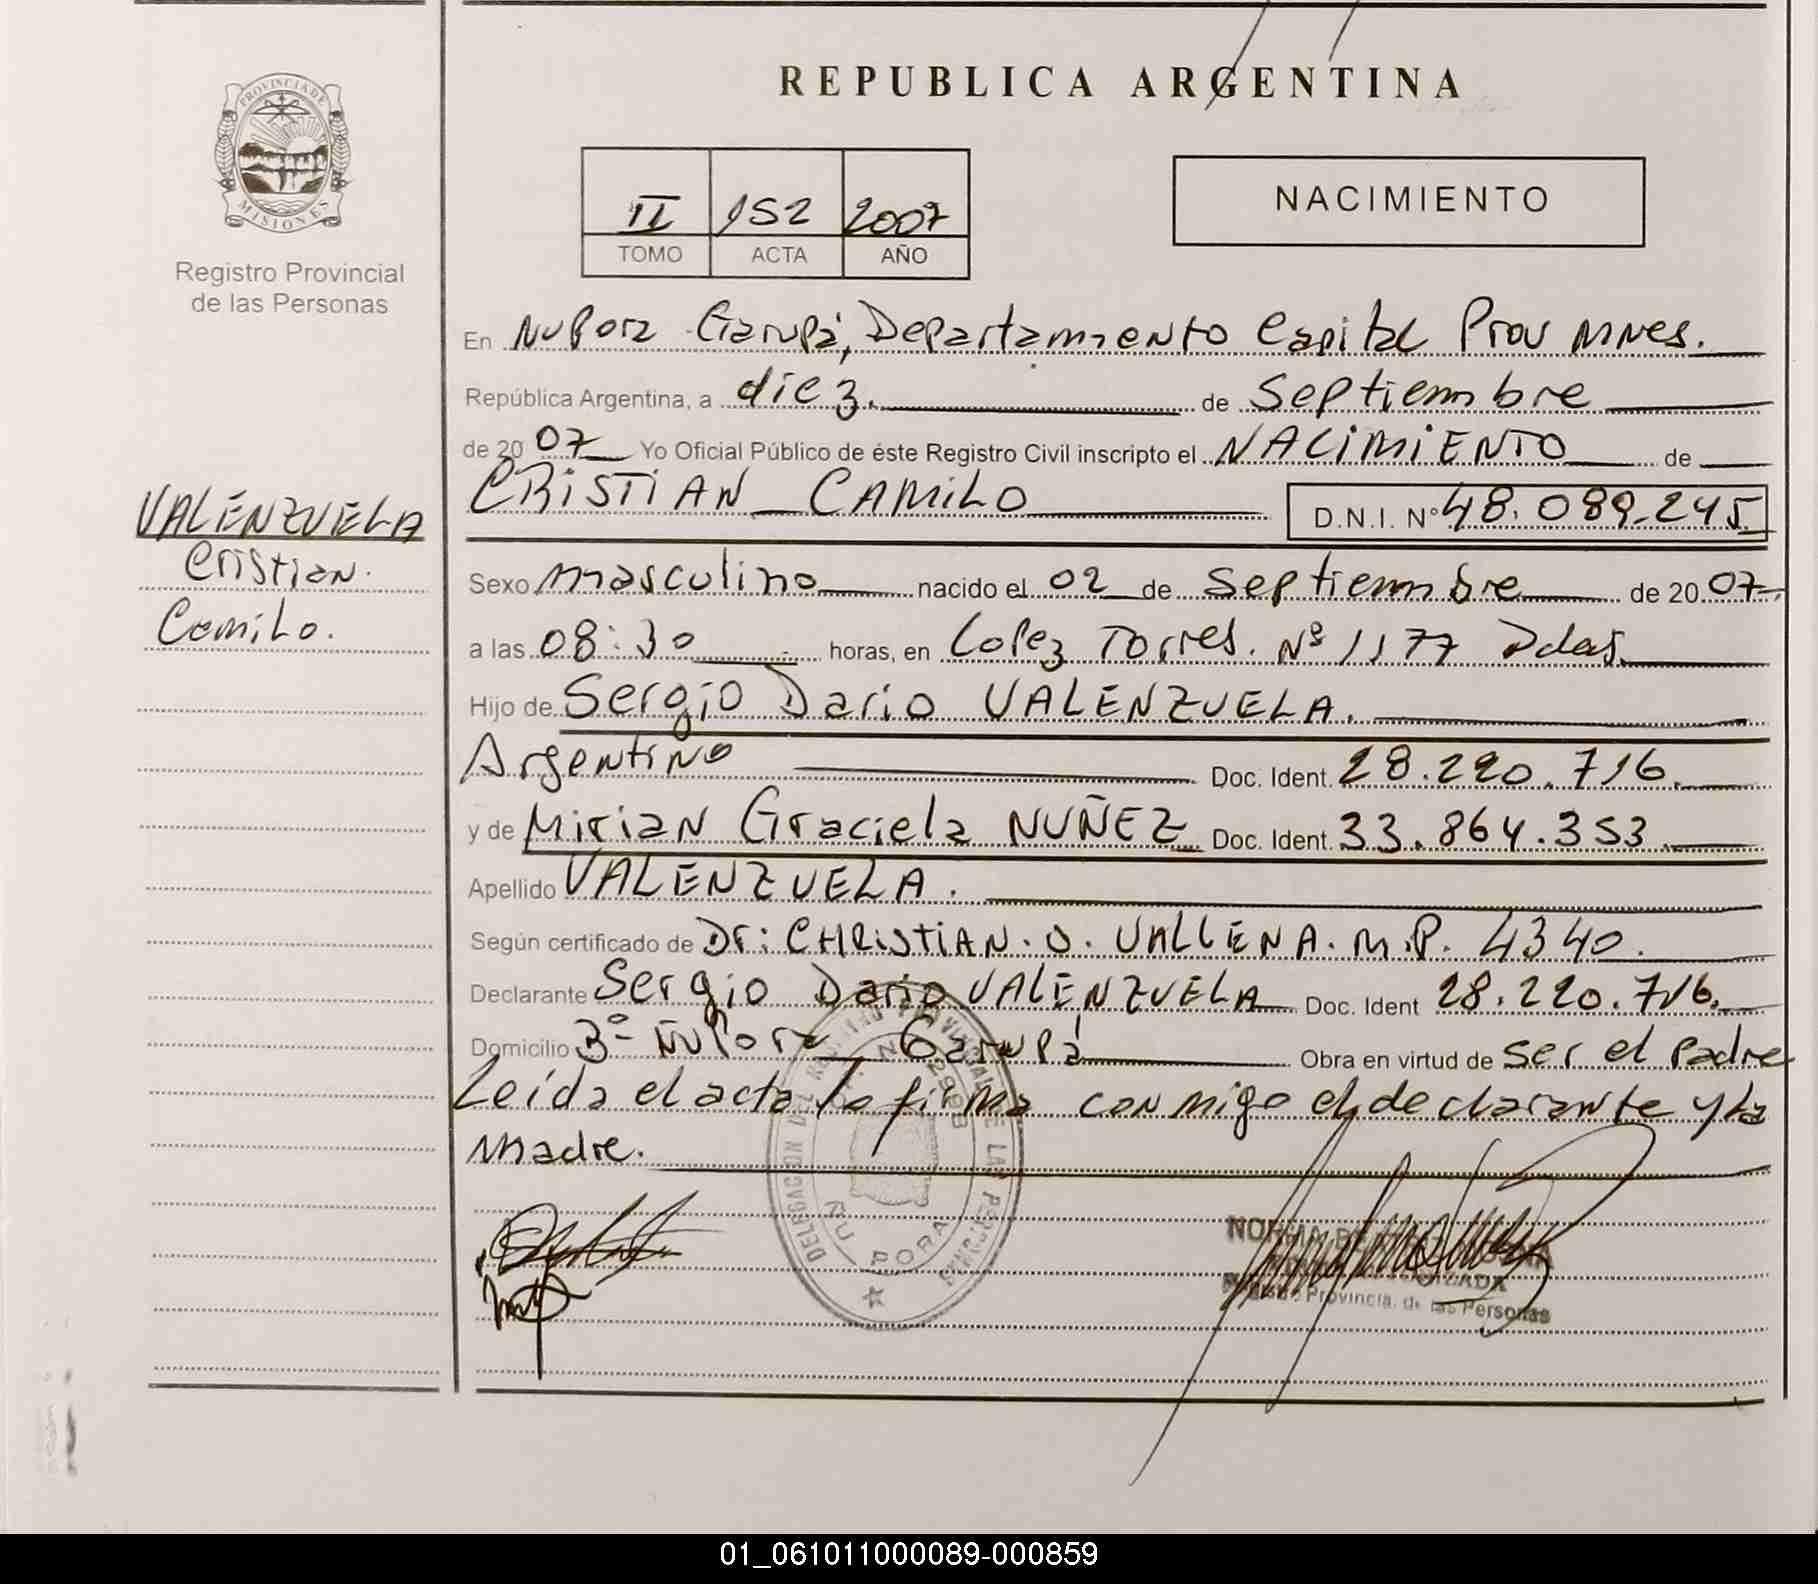 REPUBLICA ARGENTINA
PROVINCIA DE
MISIONES
Registro Provincial
de las Personas
II 152 2007
TOMO ACTA AÑO
NACIMIENTO
En Ñu Pora Garupá, Departamiento Capital Prov Mnes.
República Argentina, a diez. de Septiembre
de 2007 Yo Oficial Público de éste Registro Civil inscripto el NACIMIENTO de
CRISTIAN CAMILO D.N.I. N° 48.089.245
VALENZUELA
Cristian.
Camilo.
Sexo masculino nacido el 02 de Septiembre de 2007.
a las 08:30 horas, en Lopez Torres. Nº 1177 Pdas.
Hijo de Sergio Dario VALENZUELA.
Argentino Doc. Ident. 28.220.716.
y de Mirian Graciela NUÑEZ Doc. Ident. 33.864.353
Apellido VALENZUELA.
Según certificado de Dr: CHRISTIAN. O. VALLENA. M.P. 4340.
Declarante Sergio Dario VALENZUELA Doc. Ident 28.220.716.
Domicilio 3º Ñu Pora Garupá Obra en virtud de ser el padre
Leída el acta la firma conmigo el declarante y la
madre.
DELEGACION DEL REGISTRO PROVINCIAL DE LAS PERSONAS
ÑU PORA
NORMA
Provincial de las Personas
01_061011000089-000859